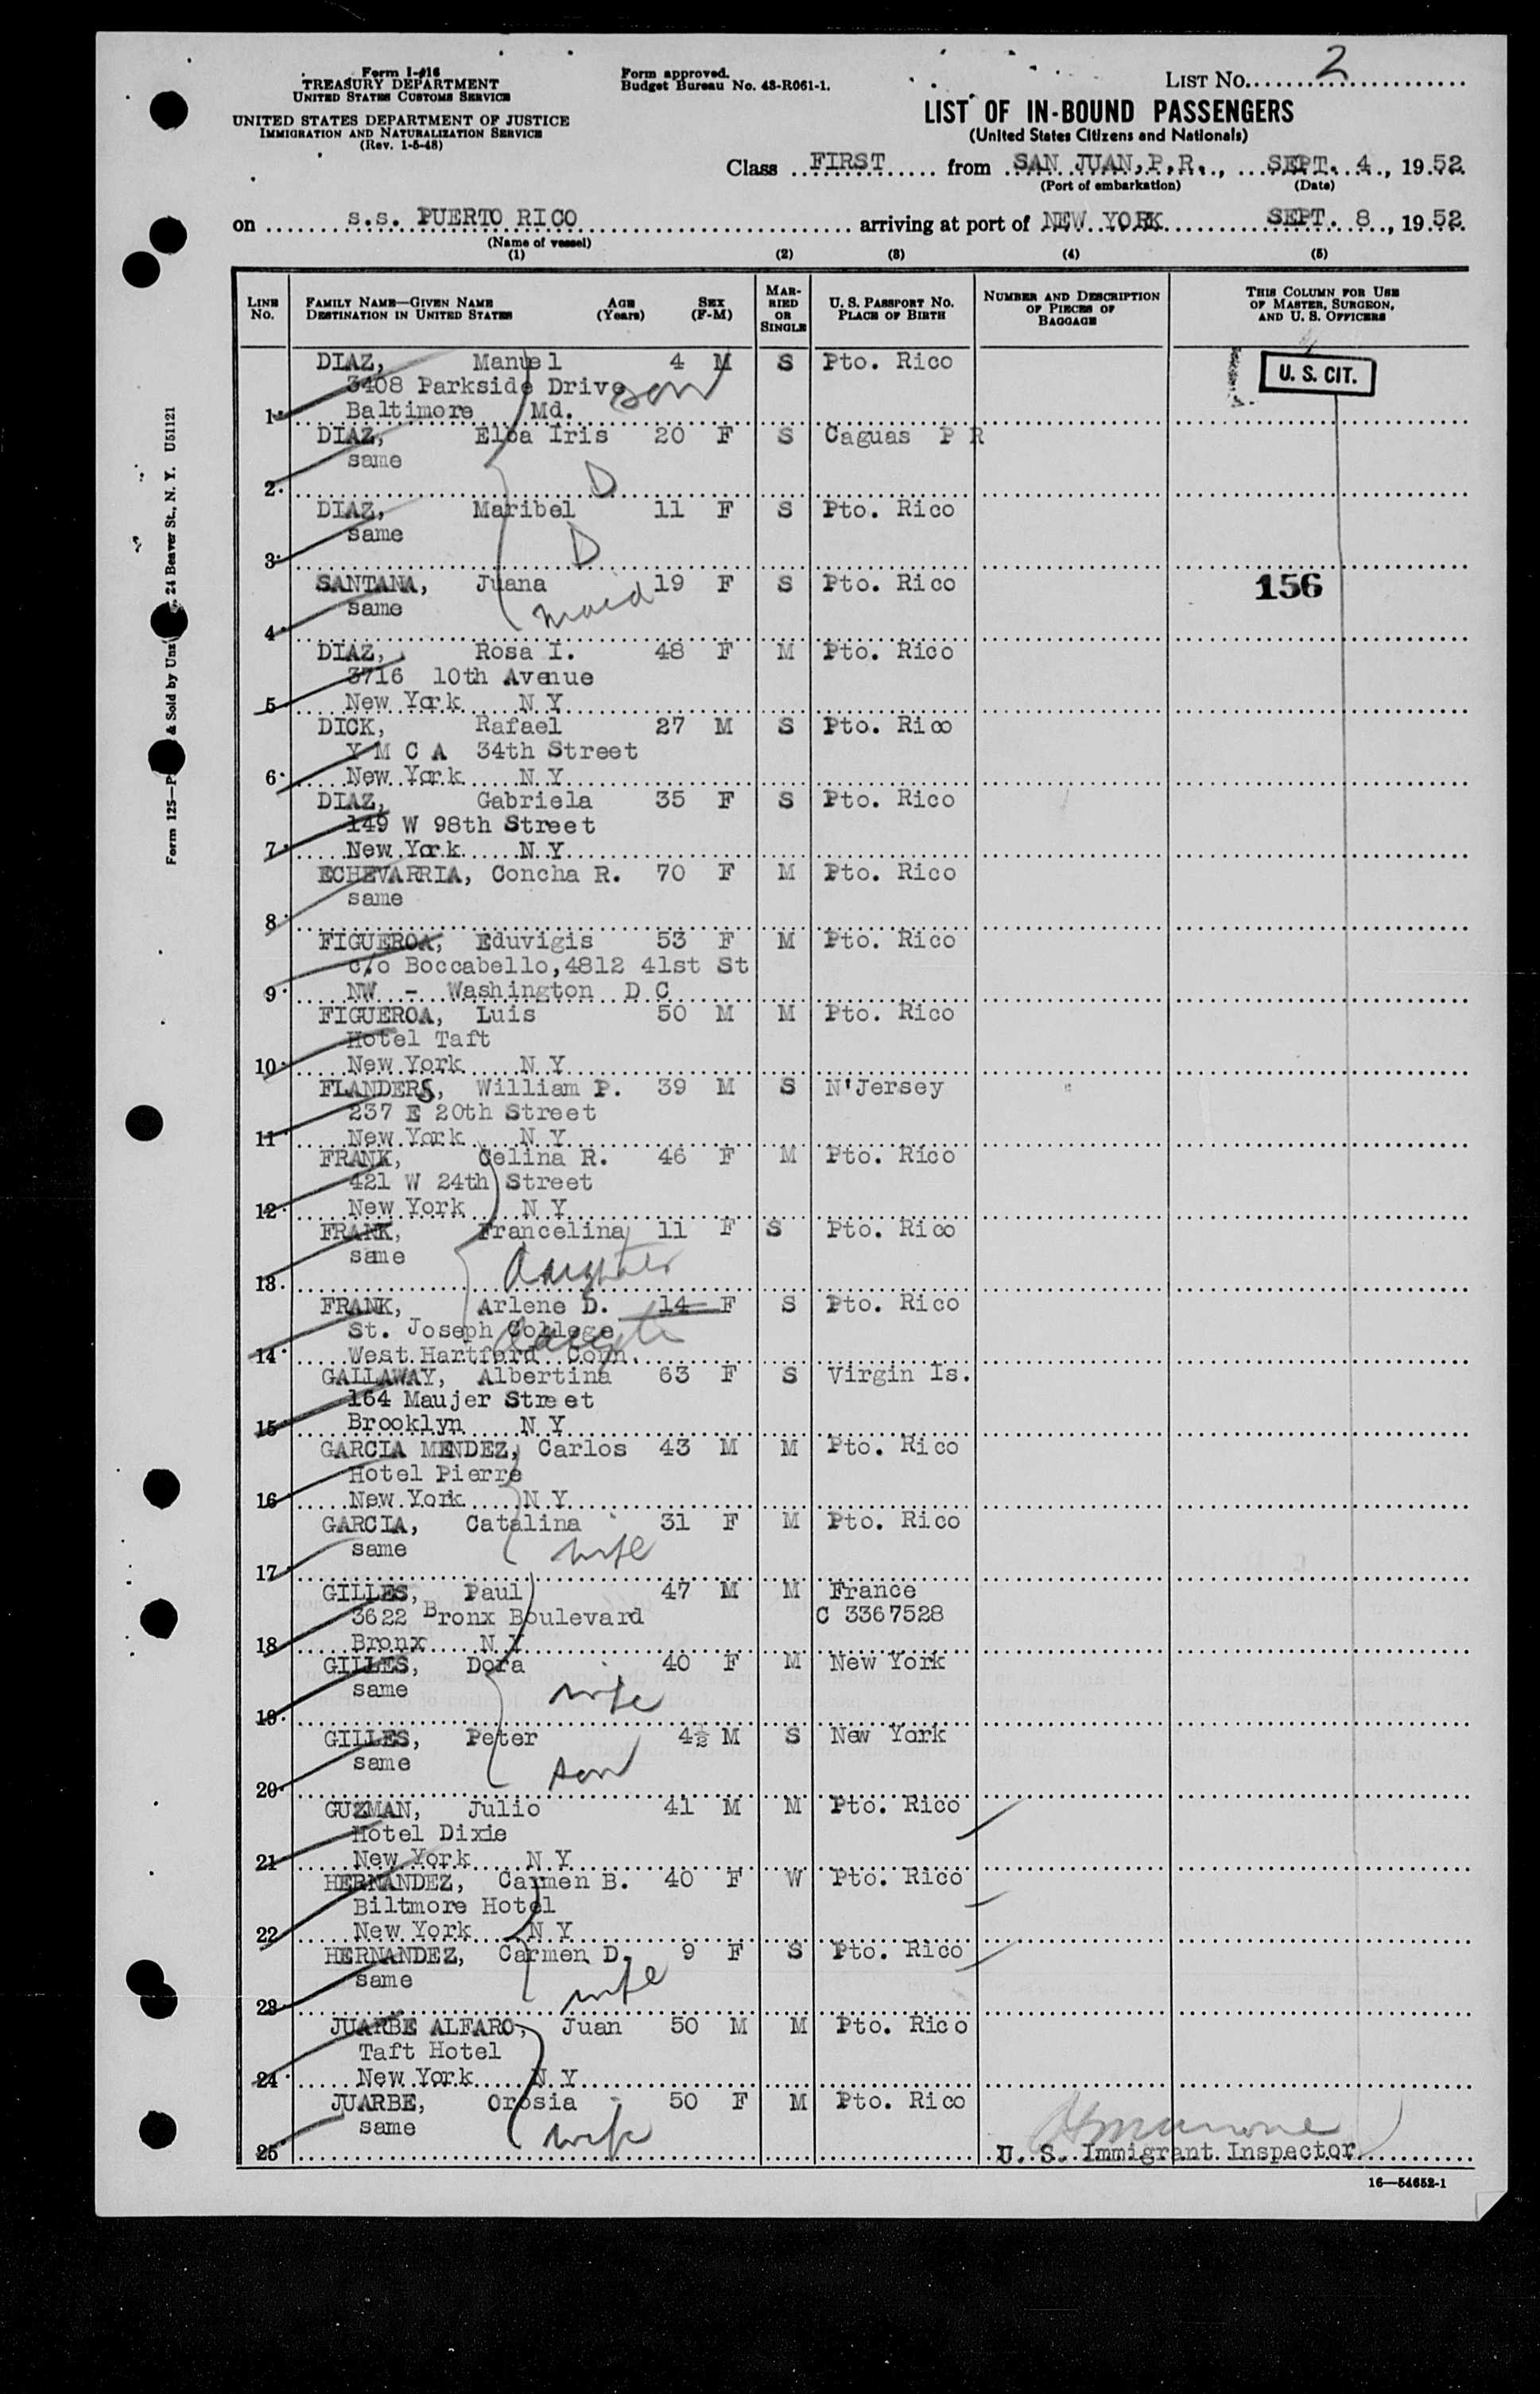 Form I-416
TREASURY DEPARTMENT
UNITED STATES CUSTOMS SERVICE
UNITED STATES DEPARTMENT OF JUSTICE
IMMIGRATION AND NATURALIZATION SERVICE
(Rev. 1-5-48)
Form approved.
Budget Bureau No. 43-R061-1.
LIST NO. 2
LIST OF IN-BOUND PASSENGERS
(United States Citizens and Nationals)
Class FIRST from SAN JUAN, P.R., SEPT. 4, 1952
(Port of embarkation) (Date)
on s.s. PUERTO RICO arriving at port of NEW YORK SEPT. 8, 1952
(Name of vessel)
(1) (2) (3) (4) (5)
LINE No. FAMILY NAME—GIVEN NAME DESTINATION IN UNITED STATES AGE (Years) SEX (F-M) MARRIED OR SINGLE U. S. PASSPORT NO. PLACE OF BIRTH NUMBER AND DESCRIPTION OF PIECES OF BAGGAGE THIS COLUMN FOR USE OF MASTER, SURGEON, AND U. S. OFFICERS
DIAZ, Manuel 4 M S Pto. Rico U. S. CIT.
3408 Parkside Drive son
1 Baltimore Md.
DIAZ, Elba Iris 20 F S Caguas P R
same
2 D
DIAZ, Maribel 11 F S Pto. Rico
same
3 D
SANTANA, Juana 19 F S Pto. Rico 156
same maid
4
DIAZ, Rosa I. 48 F M Pto. Rico
3716 10th Avenue
5 New York N Y
DICK, Rafael 27 M S Pto. Rico
Y M C A 34th Street
6 New York N Y
DIAZ, Gabriela 35 F S Pto. Rico
149 W 98th Street
7 New York N Y
ECHEVARRIA, Concha R. 70 F M Pto. Rico
same
8
FIGUEROA, Eduvigis 53 F M Pto. Rico
c/o Boccabello, 4812 41st St
9 NW - Washington D C
FIGUEROA, Luis 50 M M Pto. Rico
Hotel Taft
10 New York N Y
FLANDERS, William P. 39 M S N'Jersey
237 E 20th Street
11 New York N Y
FRANK, Celina R. 46 F M Pto. Rico
421 W 24th Street
12 New York N Y
FRANK, Francelina 11 F S Pto. Rico
same daughter
13
FRANK, Arlene D. 14 F S Pto. Rico
St. Joseph College
14 West Hartford Conn.
GALLAWAY, Albertina 63 F S Virgin Is.
164 Maujer Street
15 Brooklyn N Y
GARCIA MENDEZ, Carlos 43 M M Pto. Rico
Hotel Pierre
16 New York N Y
GARCIA, Catalina 31 F M Pto. Rico
same wife
17
GILLES, Paul 47 M M France
3622 Bronx Boulevard C 3367528
18 Bronx N Y
GILLES, Dora 40 F M New York
same wife
19
GILLES, Peter 4½ M S New York
same son
20
GUZMAN, Julio 41 M M Pto. Rico
Hotel Dixie
21 New York N Y
HERNANDEZ, Carmen B. 40 F W Pto. Rico
Biltmore Hotel
22 New York N Y
HERNANDEZ, Carmen D. 9 F S Pto. Rico
same wife
23
JUARBE ALFARO, Juan 50 M M Pto. Rico
Taft Hotel
24 New York N Y
JUARBE, Orosia 50 F M Pto. Rico
same wife
25 U. S. Immigrant Inspector
16—54652-1
24 Beaver St., N. Y. U51121
& Sold by Unz
Form 125—P